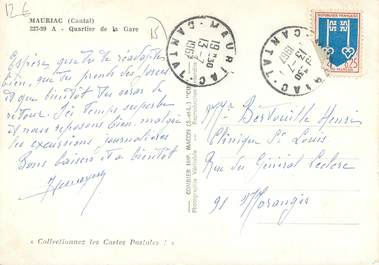 12€
MAURIAC (Cantal)
227-89 A - Quartier de la Gare
15
J'espère que tu te réadaptes
bien, que tu prends des forces
et que bientôt tu seras de
retour. Ici Temps superbe
et nous reposons bien, malgré
les excursions journalières
Bons baisers et à bientôt
« Collectionnez les Cartes Postales ! »
COMBIER IMP. MACON (S.-et-L.)
Photographie Véritable
MAURIAC
19H30
13-7
1967
CANTAL
MAURIAC
19H30
13-7
1967
CANTAL
REPUBLIQUE FRANÇAISE
0,25
Mr Bertouille Henri
Clinique St Louis
Rue du Général Leclerc
91 Morangis